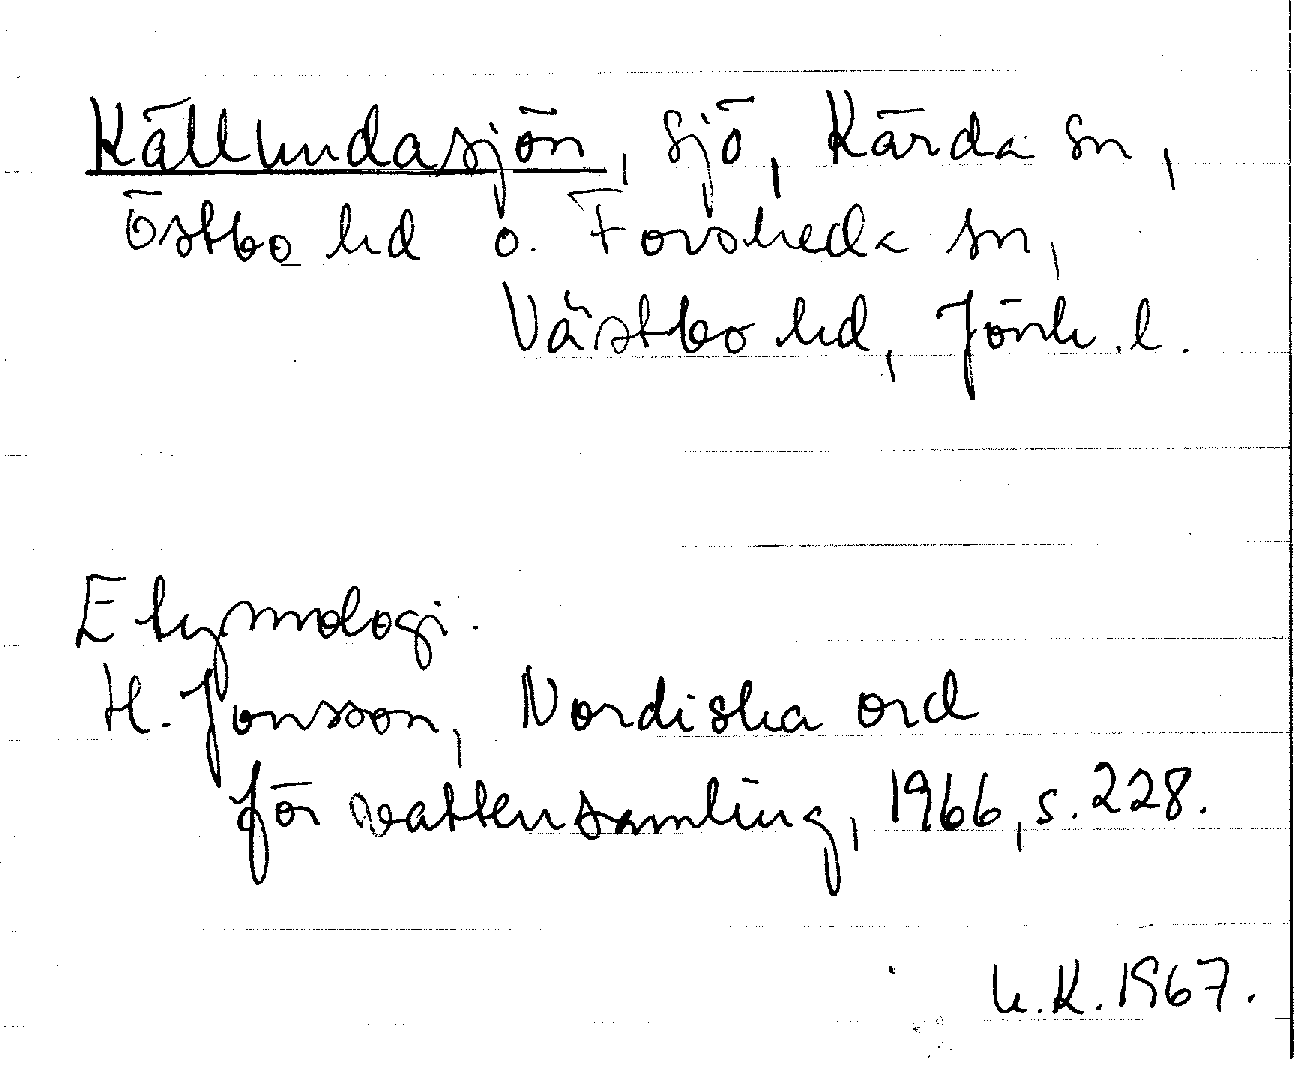 Källundasjön, sjö, Kärda sn,
Östbo hd o. Forsheda sn,
Västbo hd, Jönk. l.
Etymologi.
H. Jonsson, Nordiska ord
för vattensamling, 1966, s. 228.
K. 1967.